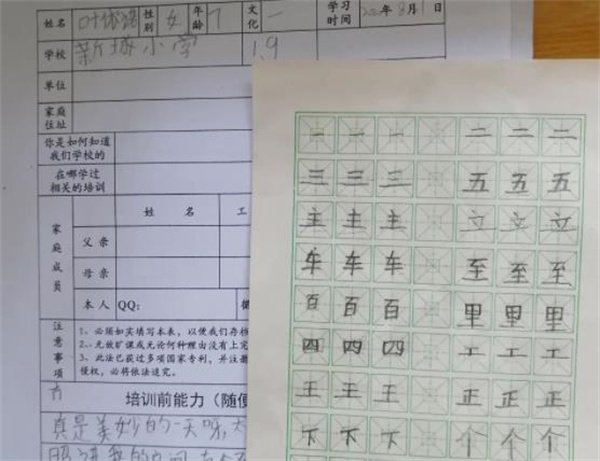 姓名 叶 性别 女 年龄 7 文化 一 学习时间 年8月1日
学校 新城小学 1.9
单位
家庭住址
你是如何知道我们学校的
在哪学过相关的培训
家庭成员 姓 名 工
父亲
母亲
本人 QQ:
注意事项 1、必须如实填写本表，以便我们存档
2、无故旷课或无论何种理由没有上完
3、此法已获过多项国家专利，并注册
侵权，必将依法追究。
培训前能力（随便
真是美妙的一天呀,
一 一 一 二 二 二
三 三 三 五 五 五
主 主 主 立 立 立
车 车 车 至 至 至
百 百 百 里 里 里
四 四 四 工 工 工
王 王 王 正 正 正
下 下 下 个 个 个